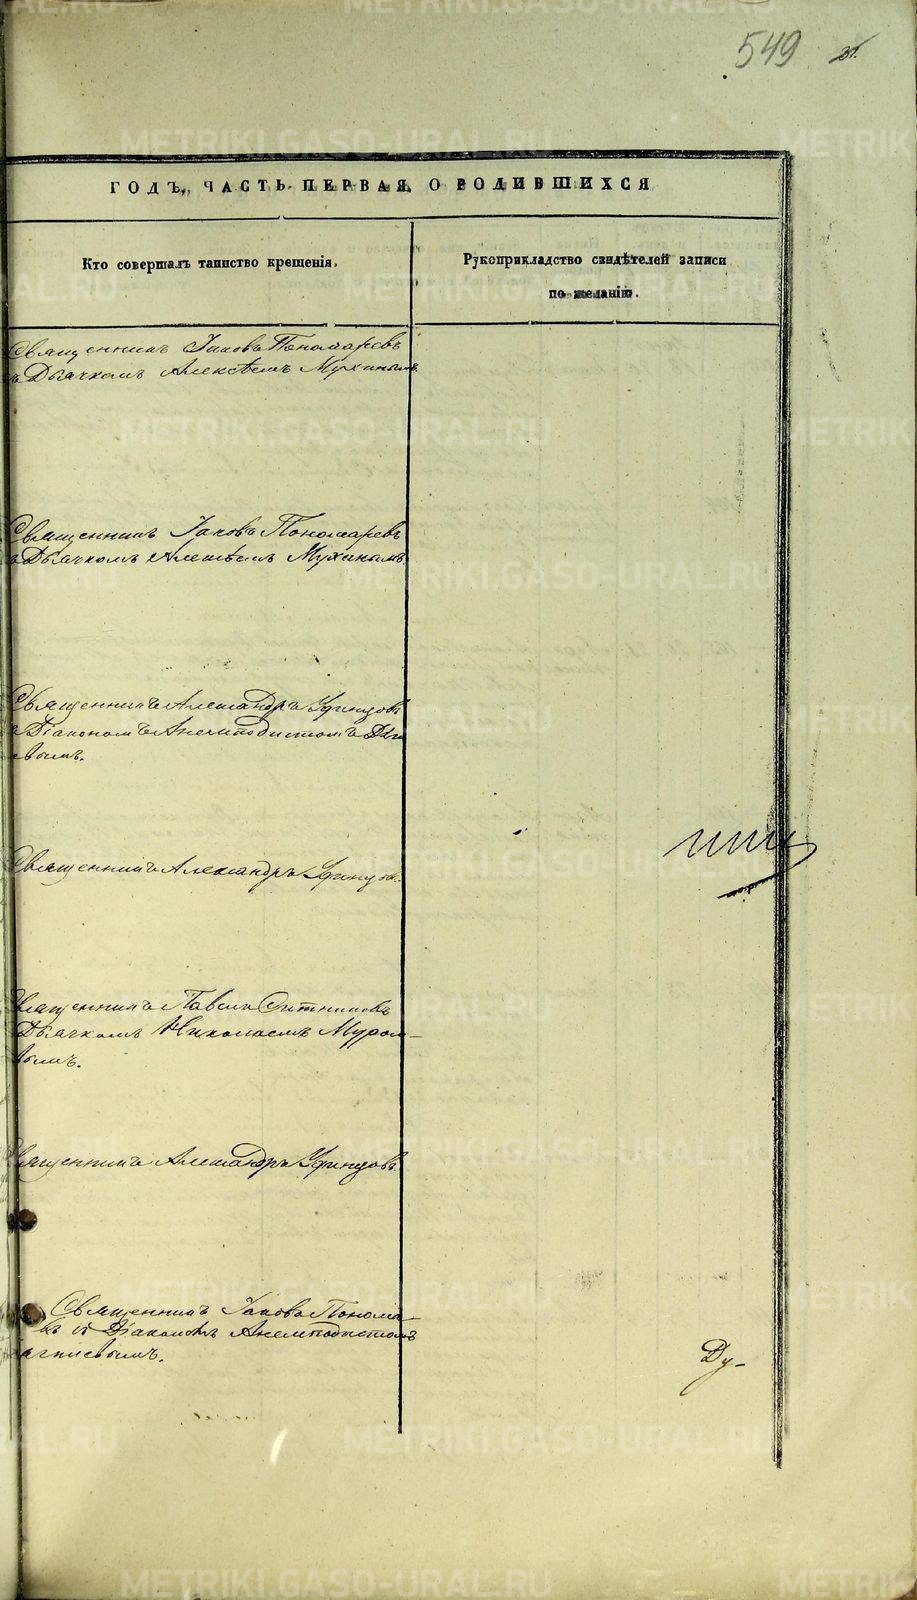 549 21.
ГОДЪ, ЧАСТЬ ПЕРВАЯ, О РОДИВШИХСЯ
Кто совершалъ таинство крещенія.
Рукоприкладство свидѣтелей записи
по желанію.
Священникъ Іаковъ Пономаревъ
съ Дьячкомъ Алексѣемъ Мухинымъ
Священникъ Іаковъ Пономаревъ
съ Дьячкомъ Алексѣемъ Мухинымъ
Священникъ Александръ Уфинцовъ
съ Діакономъ Анемподистомъ
евымъ.
Священникъ Александръ Уфинцов.
Священникъ Павелъ Ситниковъ
Дьячкомъ Николаемъ Муром-
вымъ.
Священникъ Александръ Уфинцовъ
Священникъ Іаковъ Понома-
въ и Діаконъ Анемподистомъ
гниевымъ.
Ду-
METRIKI.GASO-URAL.RU